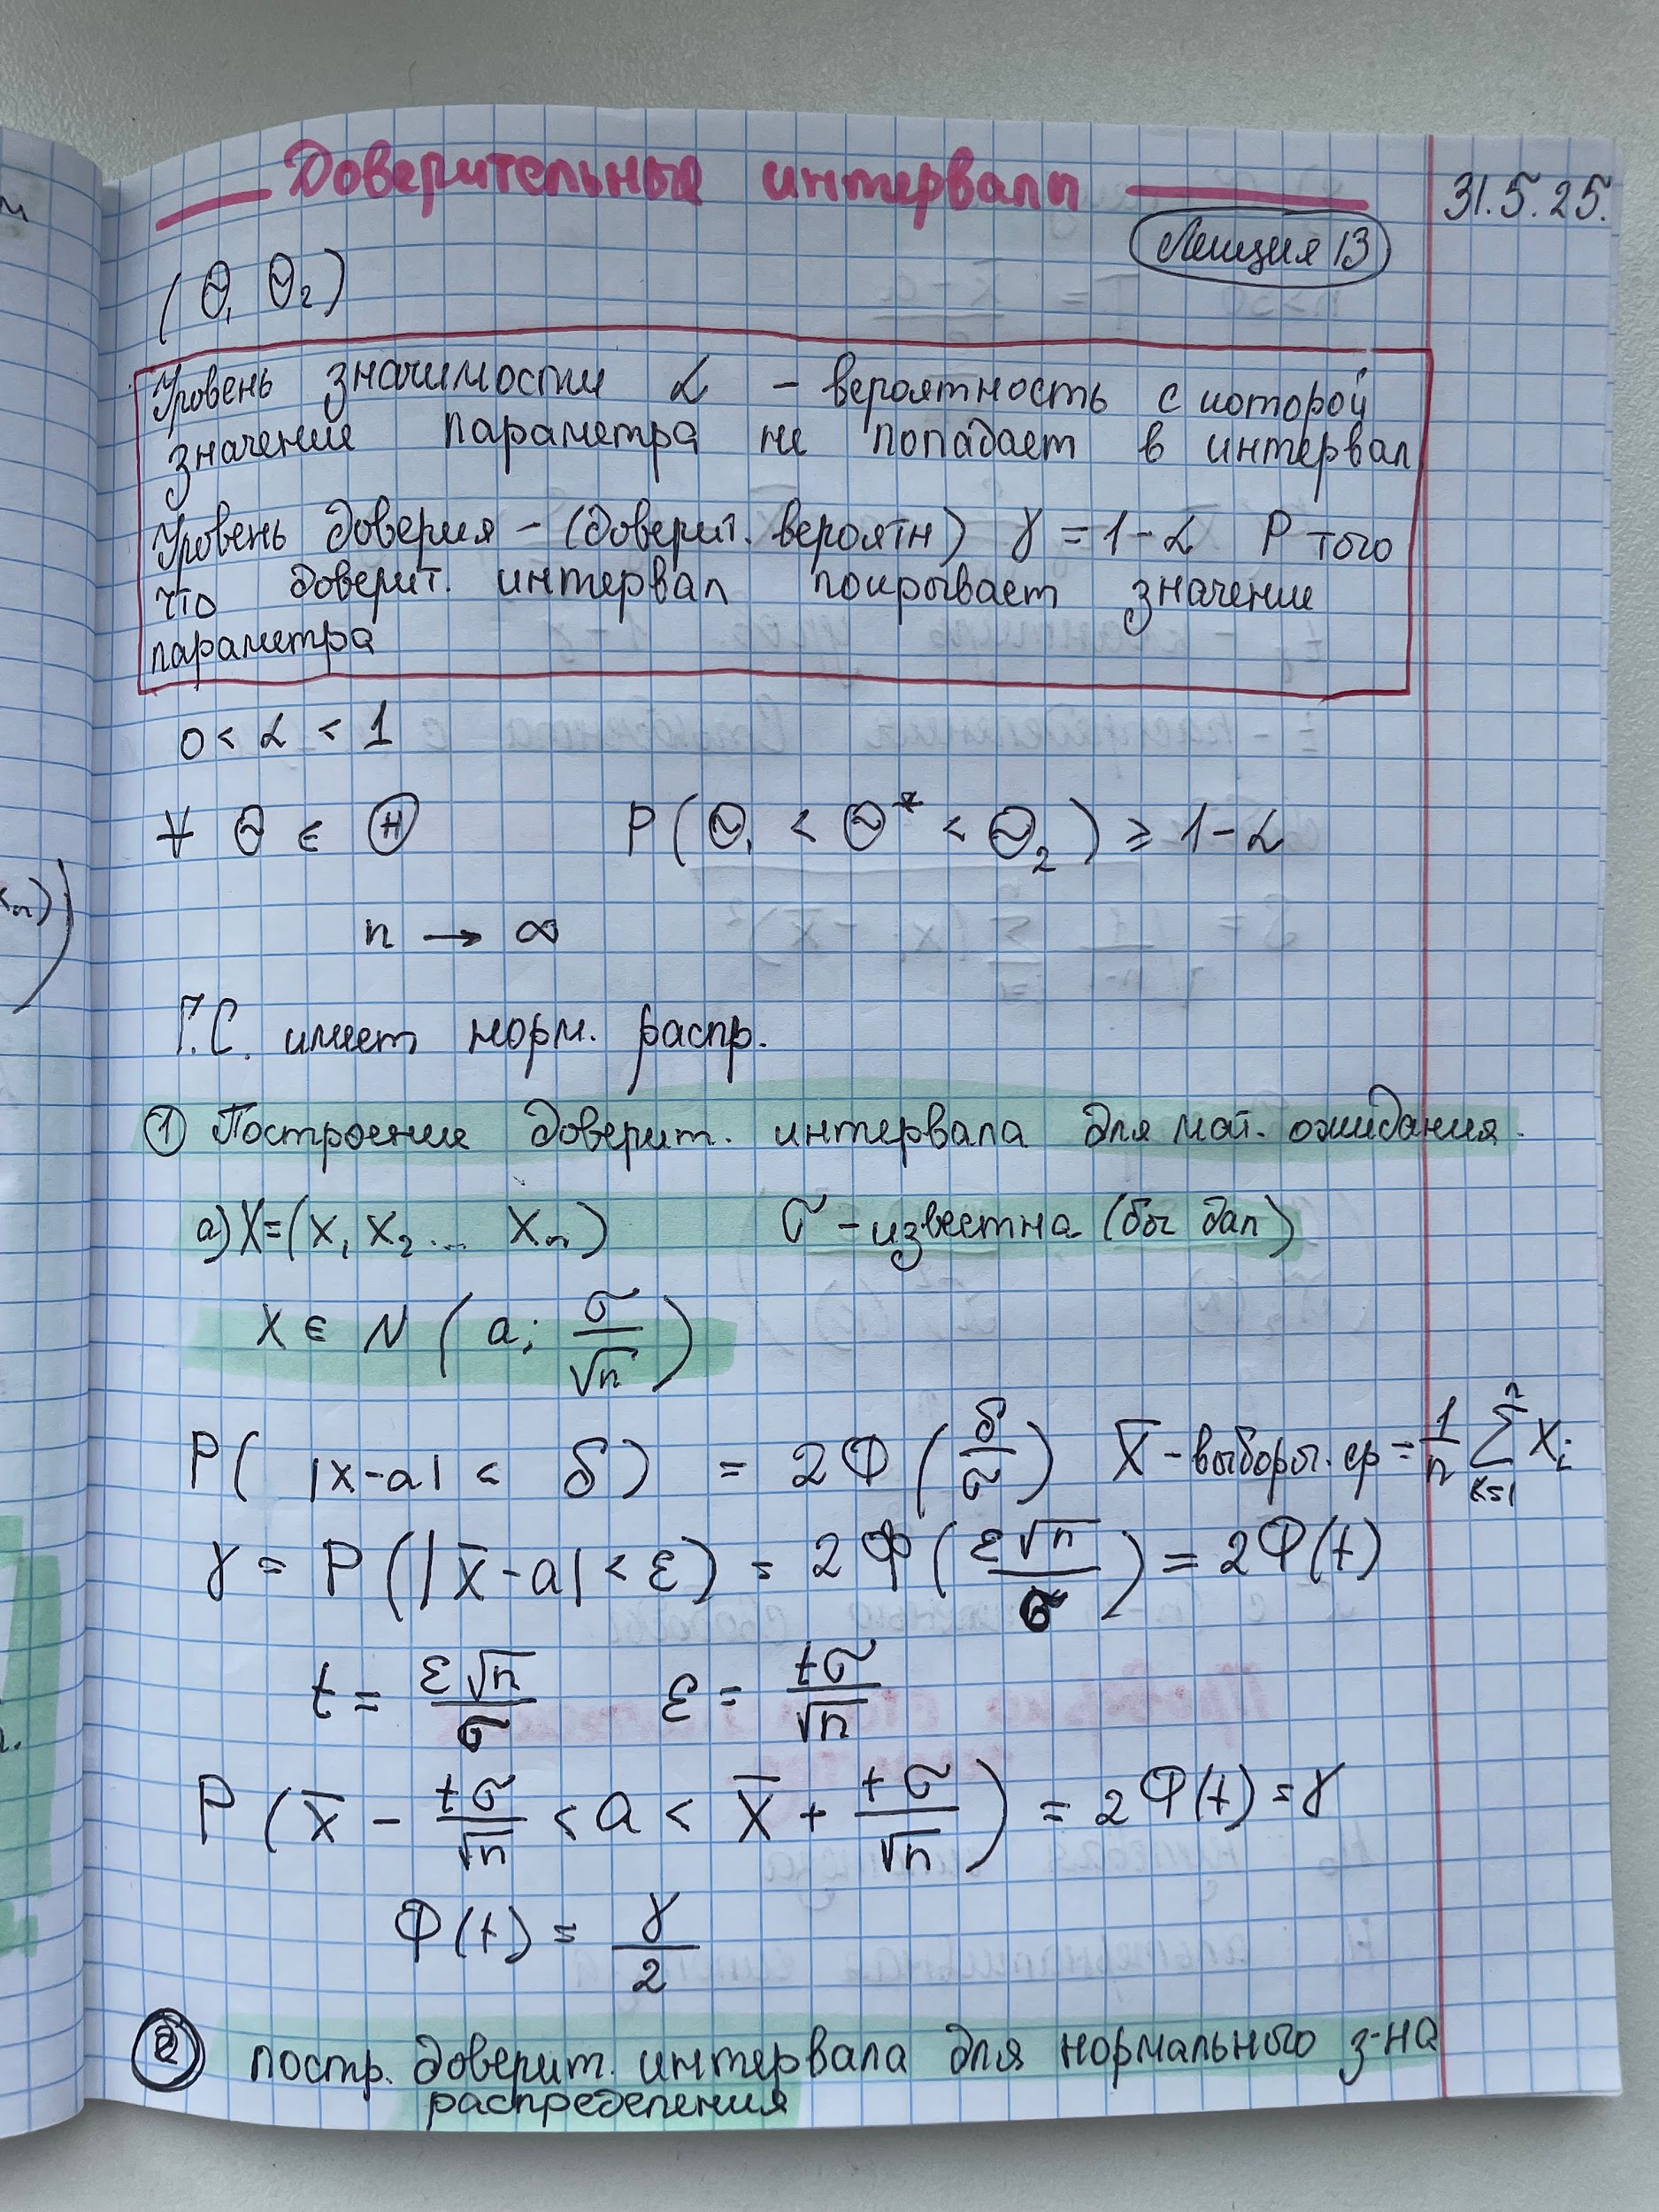 Доверительные интервалы
31.5.25.
Лекция 13
(Θ₁ Θ₂)
Уровень значимости α – вероятность с которой
значение параметра не попадает в интервал
Уровень доверия – (доверит. вероятн) γ = 1-α P того
что доверит. интервал покрывает значение
параметра
0 < α < 1
∀ Θ ∈ Ⓗ P(Θ₁ < Θ* < Θ₂) ≥ 1-α
n → ∞
Г.С. имеет норм. распр.
① Построение доверит. интервала для мат. ожидания.
а) X=(x₁ x₂ ... xₙ) σ – известна (бы дал)
X ∈ N (a; σ/√n)
P( |x-a| < δ) = 2Ф(δ/σ) x̄ – выбороч. ср = 1/n ∑ₖ₌₁ⁿ Xᵢ
γ = P(|x̄-a| < ε) = 2Ф(ε√n/σ) = 2Ф(t)
t = ε√n/σ ε = tσ/√n
P(x̄ - tσ/√n < a < x̄ + tσ/√n) = 2Ф(t) = γ
Ф(t) = γ/2
② постр. доверит. интервала для нормального з-на
распределения